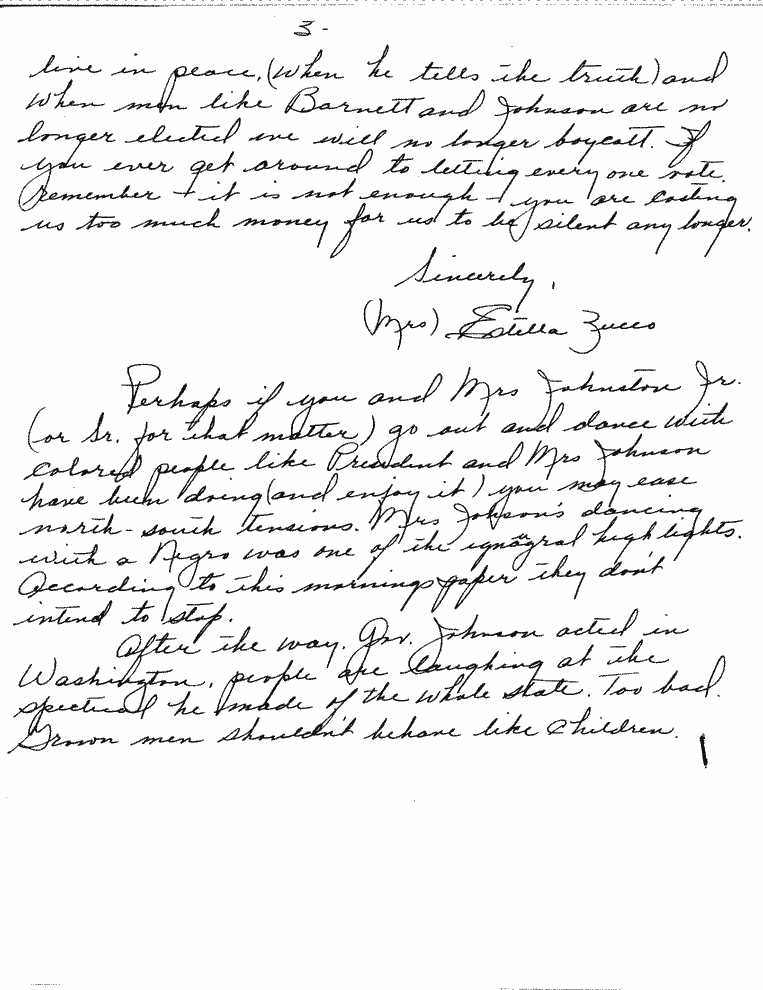 3-
live in peace, (when he tells the truth) and
when men like Barnett and Johnson are no
longer elected we will no longer boycott. If
you ever get around to letting every one vote.
Remember - it is not enough - you are costing
us too much money for us to be silent any longer.
Sincerely,
(Mrs) Estella Zucco
Perhaps if you and Mrs Johnston Jr.
(or Sr. for that matter) go out and dance with
colored people like President and Mrs Johnson
have been doing (and enjoy it) you may ease
north-south tensions. Mrs Johnson's dancing
with a Negro was one of the high lights.
According to this mornings paper they don't
intend to stop.
After the way. Gov. Johnson acted in
Washington, people are laughing at the
spectical he made of the whole state. Too bad.
Grown men shouldn't behave like children.